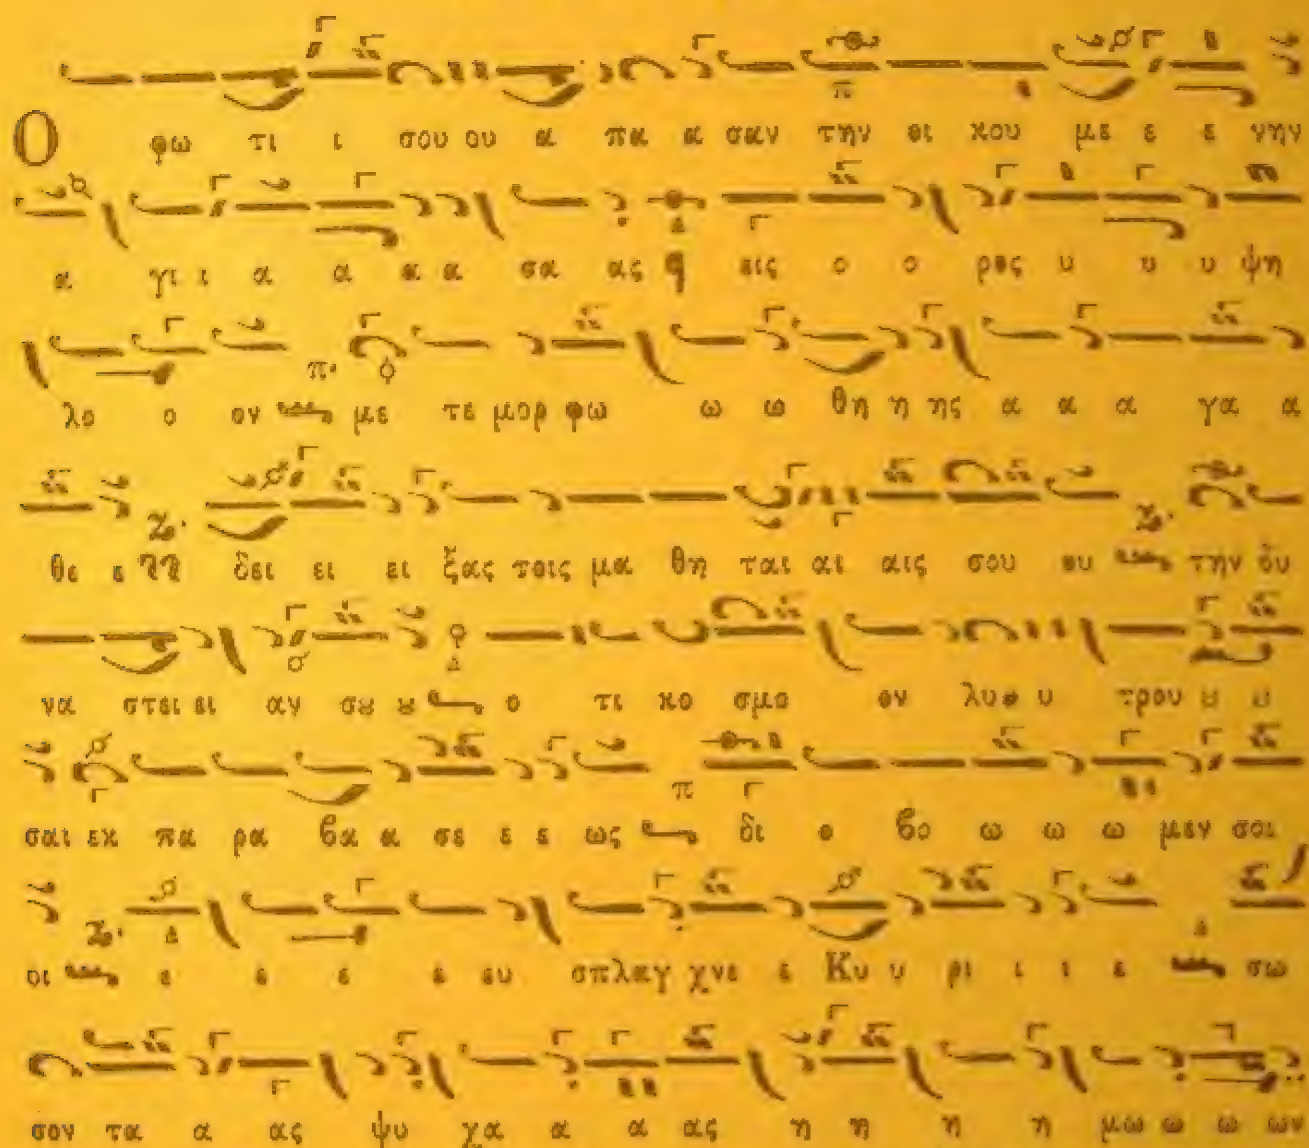 Ο φω τι ι σου ου α πα α σαν την οι κου με ε ε νην
α γι ι α α α α σα ας εις ο ο ρος υ υ υ ψη
λο ο ον με τε μορ φω ω ω θη η ης α α α γα α
θε ε δει ει ει ξας τοις μα θη ται αι αις σου ου την δυ
να στει ει αν σȣ ȣ ο τι κο σμο ον λυ υ τρου ȣ ȣ
σαι εκ πα ρα βα α σε ε ε ως δι ο βο ω ω ω μεν σοι
οι ε ε ε ε ευ σπλαγ χνε ε Κυ υ ρι ι ι ε σω
σον τα α ας ψυ χα α α ας η η η η μω ω ω ων